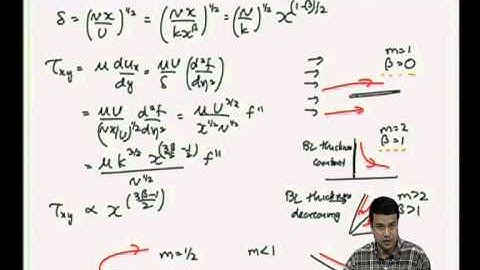 δ = (νx/U)^{1/2} = (νx/kx^β)^{1/2} = (ν/k)^{1/2} x^{(1-β)/2}
τ_xy = μ du_x/dy = μU/δ (d²f/dη²)
= μU/(νx/U)^{1/2} d²f/dη² = μU^{3/2}/x^{1/2}ν^{1/2} f"
= μ k^{3/2} x^{(3β/2 - 1/2)}/ν^{1/2} f"
τ_xy ∝ x^{(3β-1/2)}
m=1
β=0
m=2
β=1
BL thickness
constant
m>2
β>1
BL thickness
decreasing
m=1/2
m<1